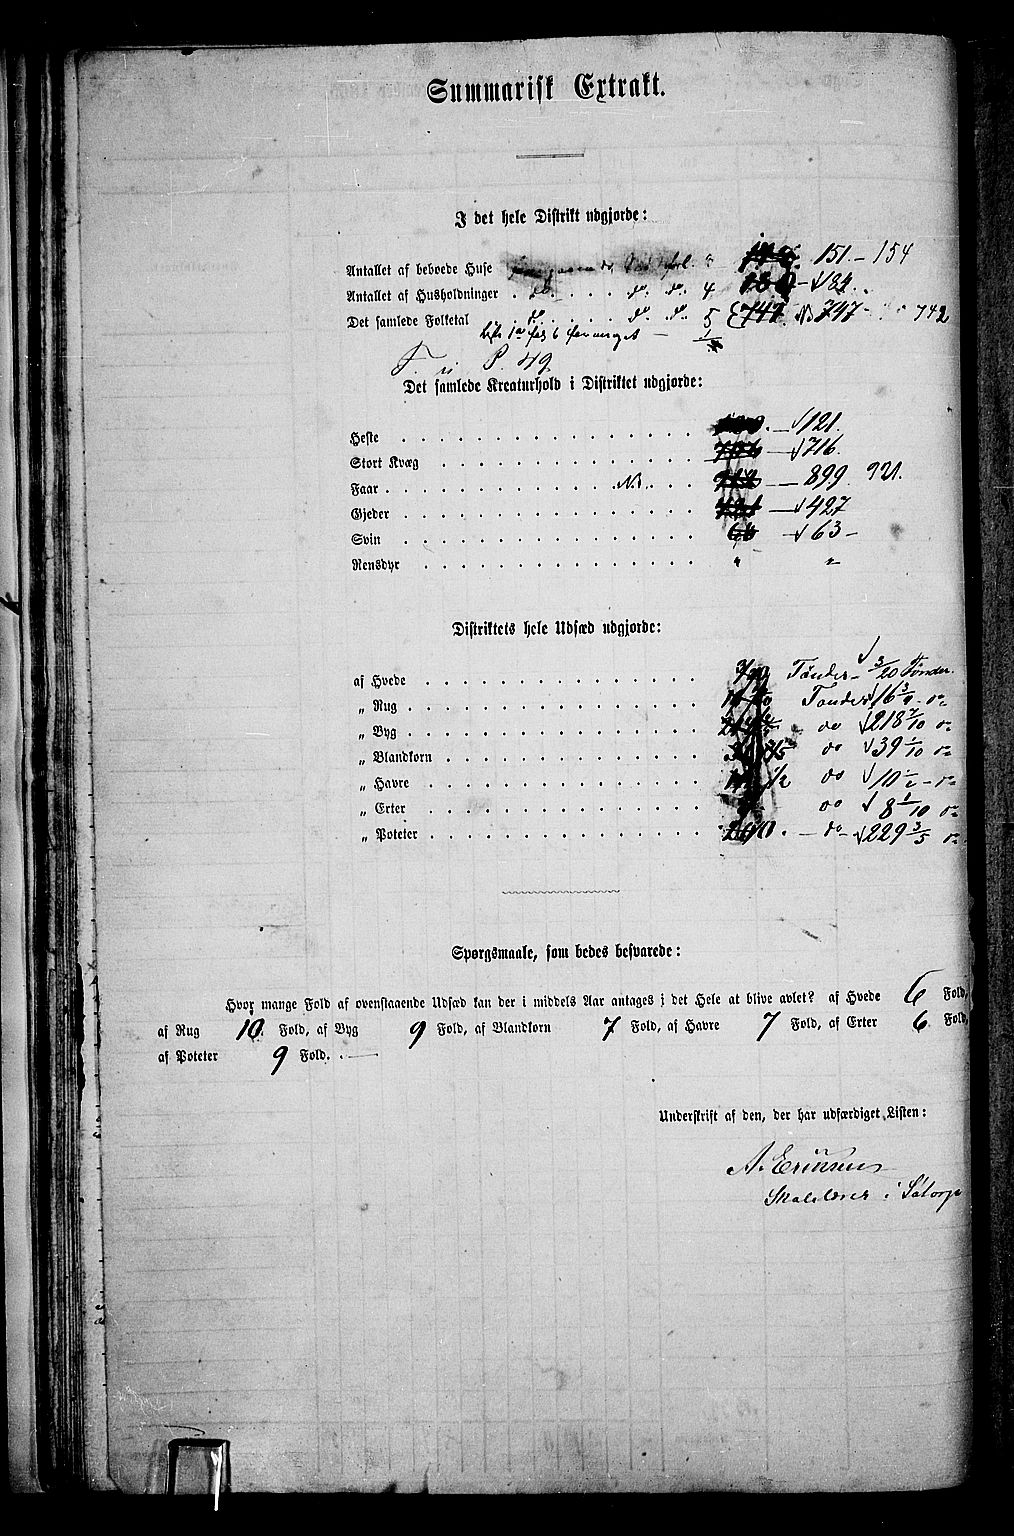 Summarisk Extrakt.
I det hele Distrikt udgjorde:
Antallet af beboede Huse 151. - 154
Antallet af Husholdninger . do. . . . do. do. 4 184.
Det samlede Folketal . do. . . . do. do. 5 747 No 747 - 742
F. u P. 49
Det samlede Kreaturhold i Distriktet udgjorde:
Heste . . . . 121.
Stort Kvæg . . . . 716.
Faar . . . . N3. . . 899. 921.
Gjeder . . . . 427
Svin . . . . 63 -
Rensdyr . . . . " "
Distriktets hele Udsæd udgjorde:
af Hvede . . . . 3/20 Tønder - 3/20 Tønder.
„ Rug . . . . Tønder 16 3/4 - do
„ Byg . . . . do 218 7/10 do
„ Blandkorn . . . . do 39 1/10 do
„ Havre . . . . 1/2 do 10 1/2 - do
„ Erter . . . . do 8 1/10 do
„ Poteter . . . . - do 229 3/5 do
Spørgsmaale, som bedes besvarede:
Hvor mange Fold af ovenstaaende Udsæd kan der i middels Aar antages i det Hele at blive avlet? af Hvede 6 Fold,
af Rug 10 Fold, af Byg 9 Fold, af Blandkorn 7 Fold, af Havre 7 Fold, af Erter 6 Fold,
af Poteter 9 Fold.
Underskrift af den, der har udfærdiget Listen:
A. Ericksen
Skolelærer i Satorp